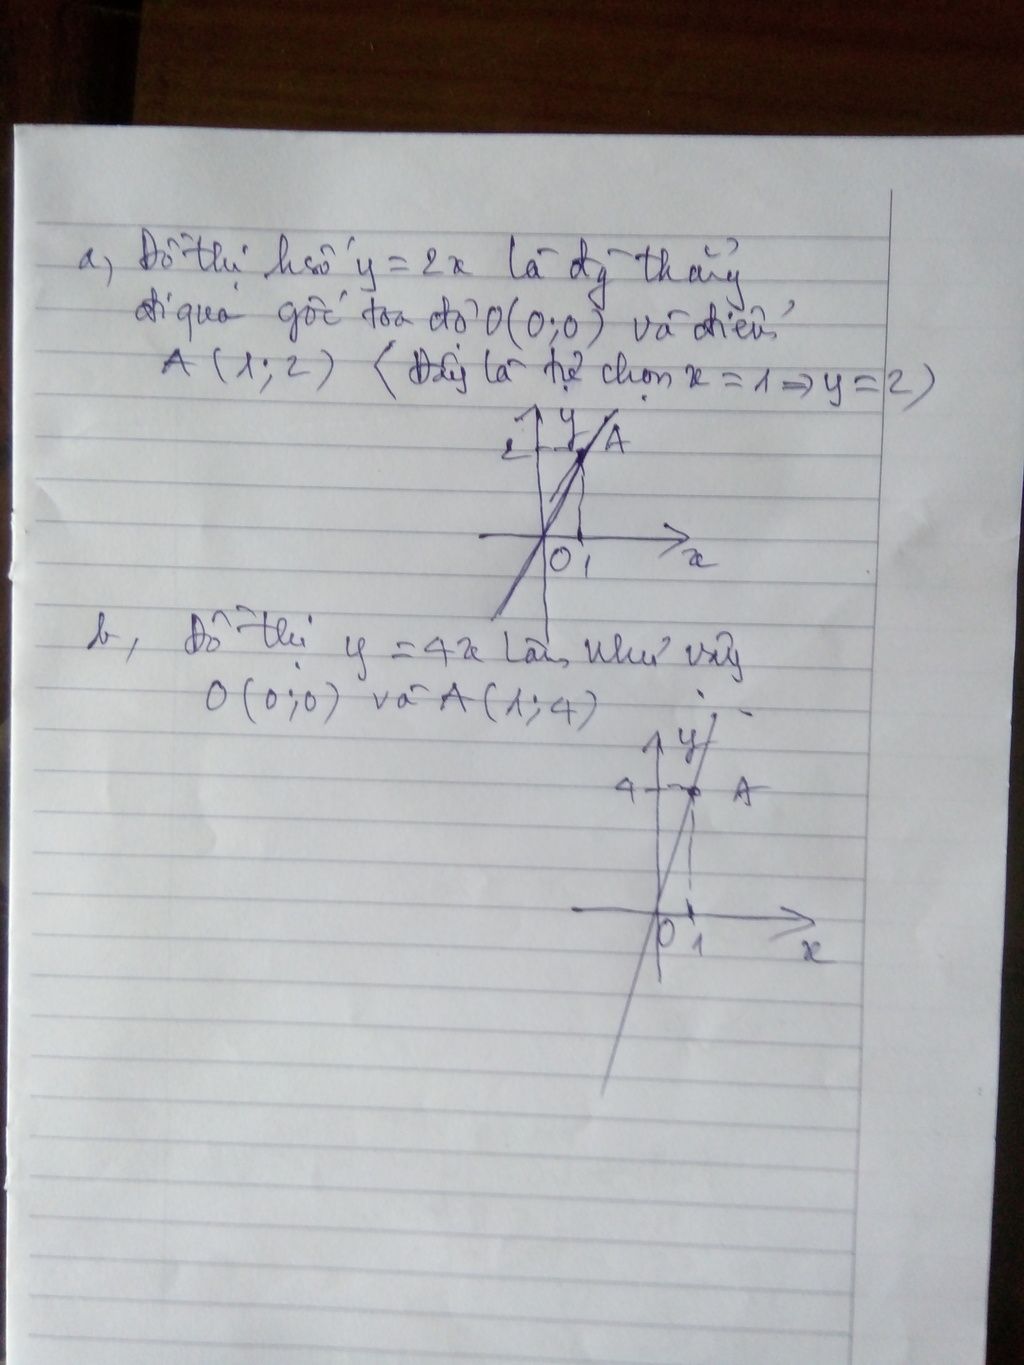 a, Đồ thị hsố y = 2x là đg thẳng
đi qua gốc tọa độ O(0;0) và điểm
A (1; 2) (Đây là tự chọn x = 1 => y = 2)
y
2 A
O 1 x
b, Đồ thị y = 4x làm như vậy
O (0;0) và A (1; 4)
y
4 A
O 1 x